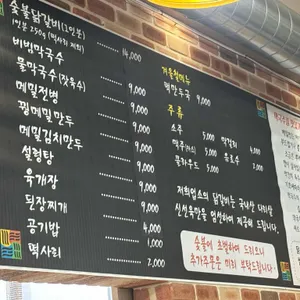 숯불닭갈비(2인분)
1인분 250g (떡사리 제외) 14,000
비빔막국수 9,000
물막국수(잔육수) 9,000
메밀전병 9,000
찜메밀만두 9,000
메밀김치만두 9,000
설렁탕 9,000
육개장 9,000
된장찌개 9,000
공기밥 1,000
떡사리 2,000
겨울철메뉴
떡만두국 9,000
주류
소주 5,000
맥주 5,000
막걸리 4,000
음료수 2,000
저희업소의 닭갈비는 국내산 다리살
신선육만을 엄선하여 제공해 드립니다.
숯불에 초벌하여 드리오니
추가주문은 미리 부탁드립니다.